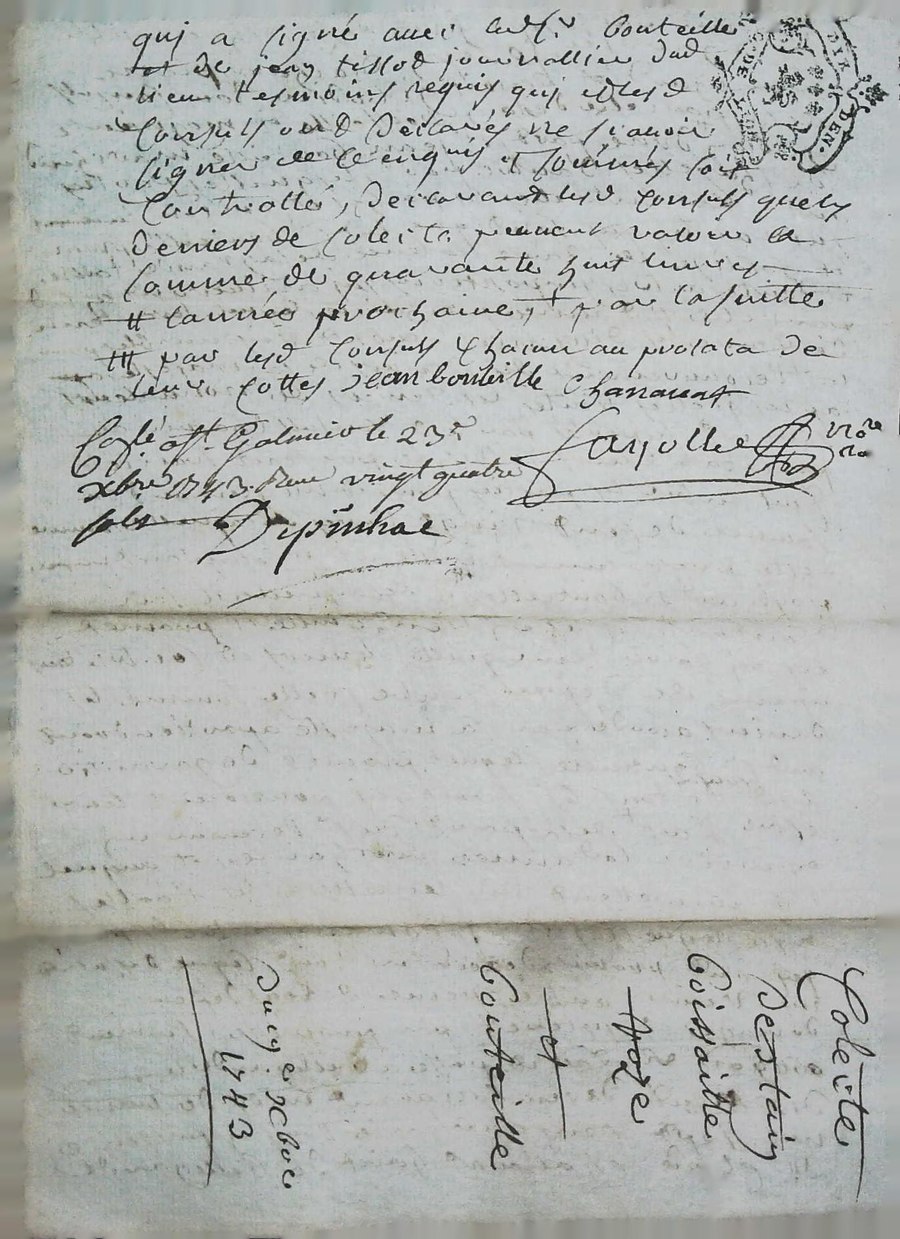 qui a signé avec led sr bouteille
et de jean tissod journallier dud
lieu tesmoins requis qui lesd
Consuls ond déclarés ne scavoir
signer de ce enquis et sommés soit
Controllé, declarant lesd consuls que les
deniers de Colecte peuvent valoir la
somme de quarante huit livres
# lannée prochaine, par la suitte
par lesd consuls Chacun au prorata de
leurs Cottes jean bouteille Chanavat
Fayolle
nore
Colé a st Galmier le 23e
xbre 1743. Reçu vingt quatre
sols
Depinhac
Colecte
Destaing
boissaitte
et
bouteille
Du 19e xbre
1743
DEN.